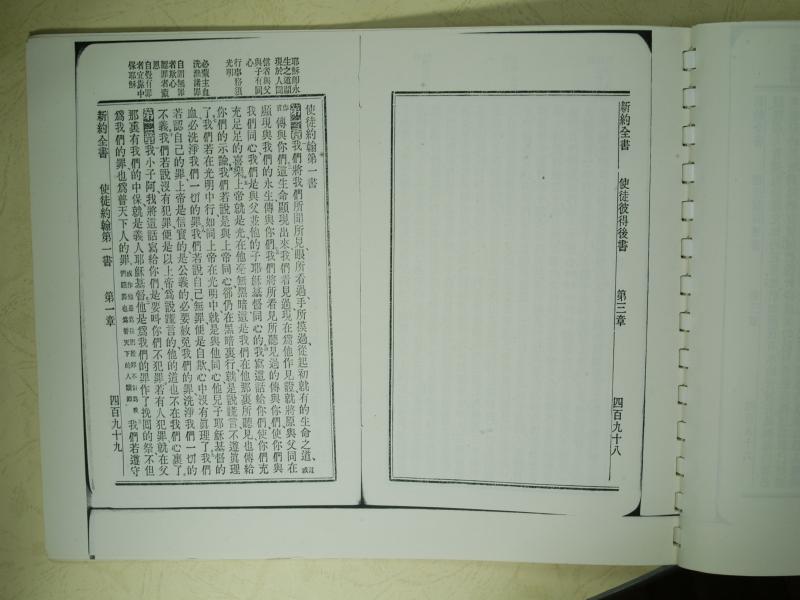 新約全書 使徒彼得後書 第三章 四百九十八
耶穌即永
生之道顯
現於人間
信者與父
與子有同
心
行事務須
光明
必藉主血
洗滌諸罪
自謂無罪
者欺心
認罪者蒙
恩
自覺有罪
者宜靠中
保耶穌
使徒約翰第一書
第一章我們將我們所聞所見眼所看過手所摸過從起初就有的生命之道、
傳與你們這生命顯現出來我們看見過現在爲他作見證就將原與父同在
顯現與我們的永生、傳與你們我們將所看見所聽見過的傳與你們使你們與
我們同心我們是與父並他的子耶穌基督、同心的我寫這話給你們使你們充
充足足的喜樂上帝就是光在他毫無黑暗這是我們在他那裏所聽見也傳給
你們的示諭我們若說是與上帝同心卻仍在黑暗裏行就是說謊言不遵眞理
了我們若在光明中行如同上帝在光明中就是與他同心他兒子耶穌基督的
血必洗淨我們一切的罪我們若說自己無罪便是自欺心中沒有眞理了我們
若認自己的罪上帝是信實的是公義的必要赦免我們的罪洗淨我們一切的
不義我們若說沒有犯罪便是以上帝爲說謊言的他的道也不在我們心裏了、
第二章我小子阿我將這話寫給你們是要叫你們不犯罪若有人犯罪就在父
那裏有我們的中保就是義人耶穌基督他是爲我們的罪作了挽回的祭不但
爲我們的罪也爲普天下人的罪 我們若遵守
新約全書 使徒約翰第一書 第一章 四百九十九